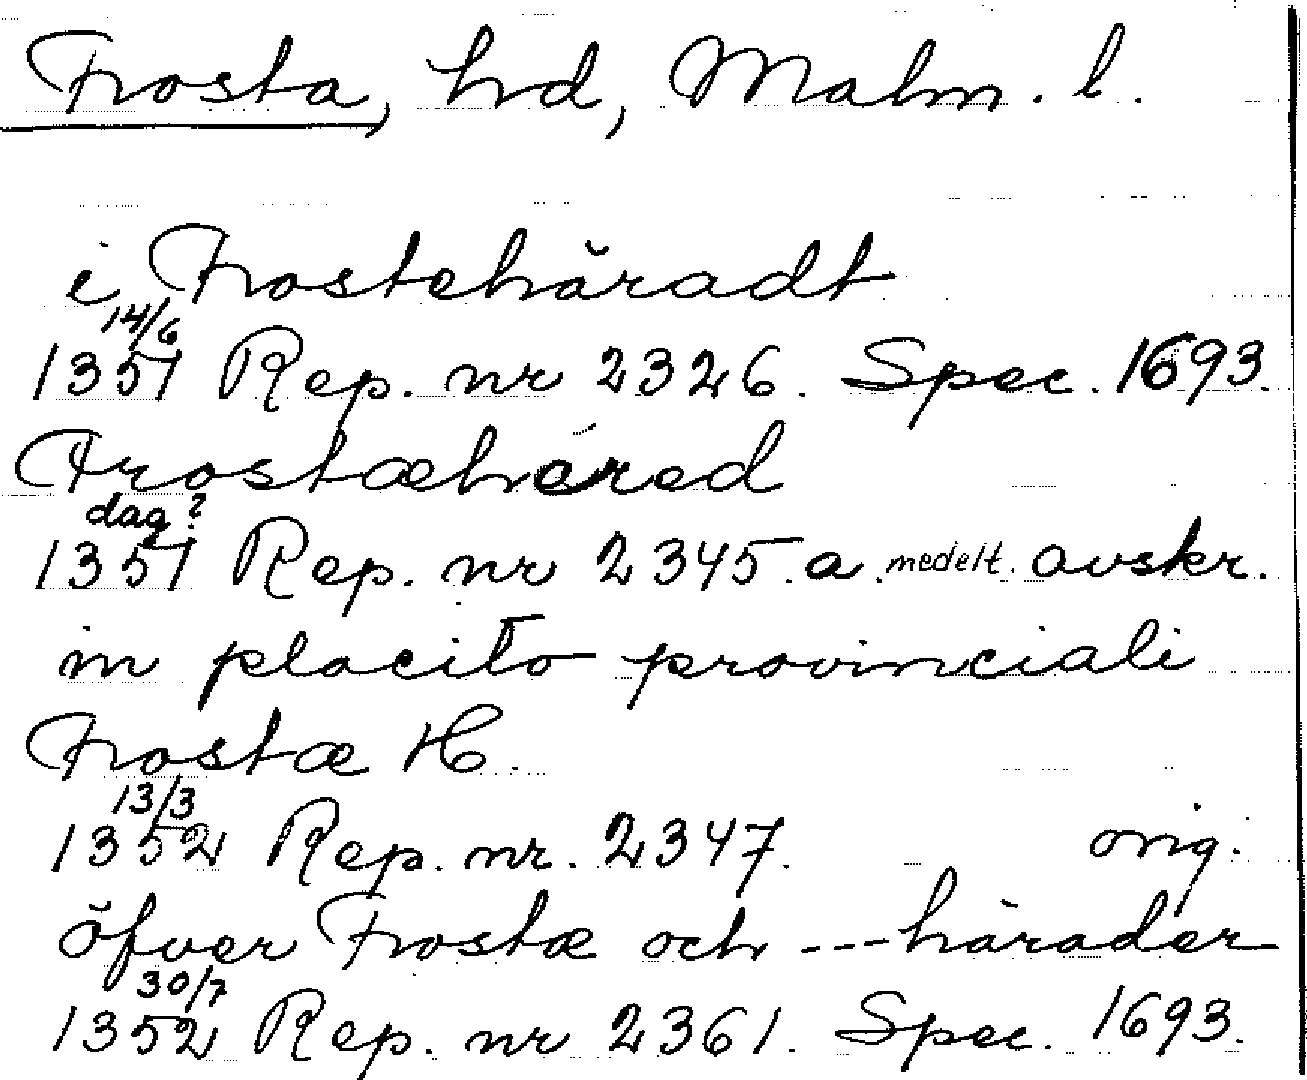 Frosta, hd, Malm. l.
i Frostehäradt
14/6
1351 Rep. nr 2326. Spec. 1693.
Frostæhæred
dag?
1351 Rep. nr 2345 a. medelt. avskr.
in placito provinciali
Frostæ H
13/3
1352 Rep. nr. 2347. orig.
öfver Frostæ och --- härader
30/7
1352 Rep. nr 2361. Spec. 1693.